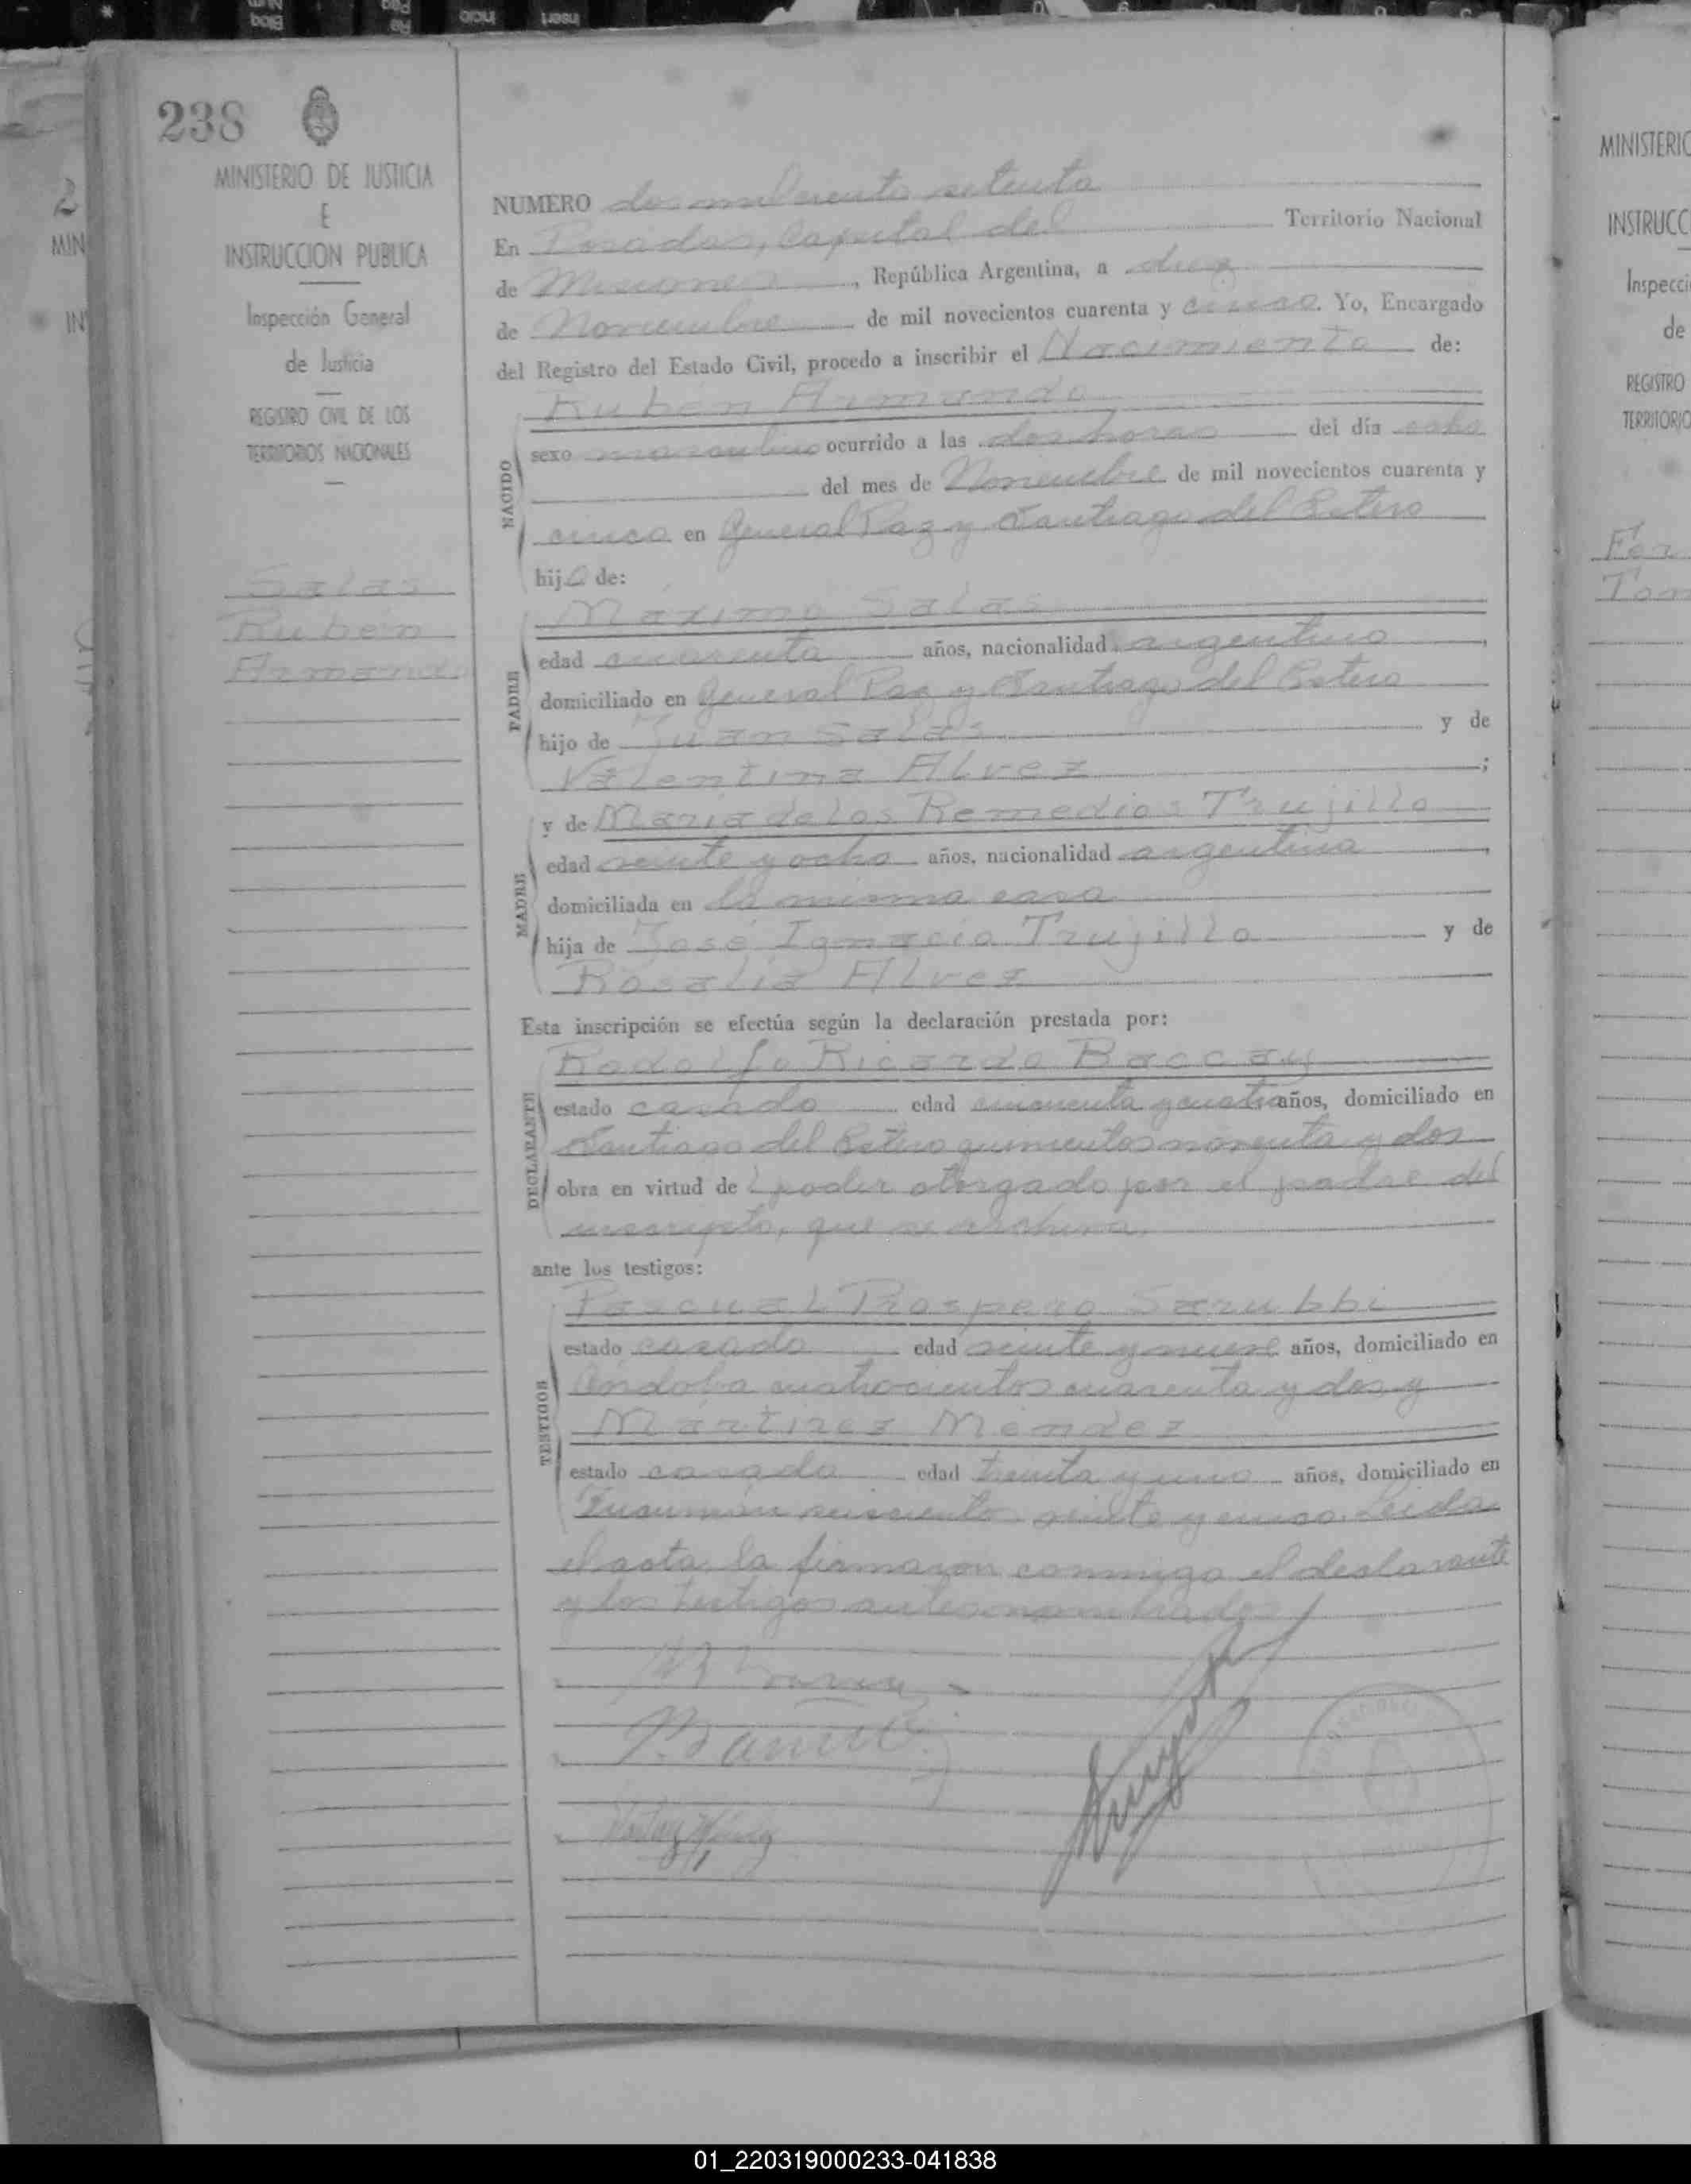 238
MINISTERIO DE JUSTICIA
E
INSTRUCCION PUBLICA
Inspección General
de Justicia
REGISTRO CIVIL DE LOS
TERRITORIOS NACIONALES
Salas
Rubén
Armando
NUMERO dos mil ciento setenta
En Posadas, Capital del Territorio Nacional
de Misiones, República Argentina, a diez
de Noviembre de mil novecientos cuarenta y cinco. Yo, Encargado
del Registro del Estado Civil, procedo a inscribir el Nacimiento de:
Rubén Armando
NACIDO
sexo masculino ocurrido a las dos horas del día ocho
del mes de Noviembre de mil novecientos cuarenta y
cinco en General Paz y Santiago del Estero
hijo de:
Máximo Salas
PADRE
edad cuarenta años, nacionalidad argentino,
domiciliado en General Paz y Santiago del Estero
hijo de Juan Salas y de
Valentina Alvez;
y de María de los Remedios Trujillo
MADRE
edad veinte y ocho años, nacionalidad argentina,
domiciliada en la misma casa
hija de José Ignacio Trujillo y de
Rosalía Alvez
Esta inscripción se efectúa según la declaración prestada por:
Rodolfo Ricardo Baccay
DECLARANTE
estado casado edad cincuenta y cuatro años, domiciliado en
Santiago del Estero quinientos noventa y dos
obra en virtud de poder otorgado por el padre del
inscripto, que se archiva.
ante los testigos:
Pascual Prospero Sarubbi
TESTIGOS
estado casado edad veinte y nueve años, domiciliado en
Córdoba cuatrocientos cuarenta y dos y
Mártires Mendez
estado casado edad treinta y uno años, domiciliado en
Tucumán seiscientos veinte y cinco. Leida
el acta, la firmaron conmigo el declarante
y los testigos antes nombrados
MINISTERIO
INSTRUCC
Inspecci
de
REGISTRO
TERRITORIO
01_220319000233-041838